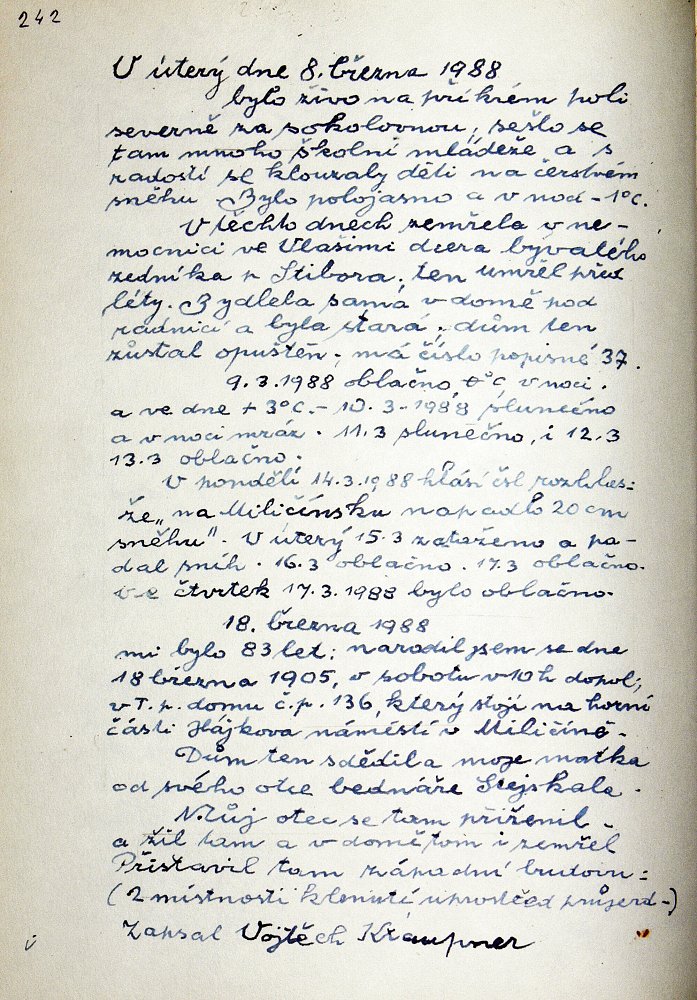 242
V úterý dne 8. března 1988
bylo živo na příkrém poli
severně za sokolovnou, sešlo se
tam mnoho školní mládeže a s
radostí se klouzaly děti na čerstvém
sněhu. Bylo polojasno a v noci - 1°C.
V těchto dnech zemřela v ne-
mocnici ve Vlašimi dcera bývalého
zedníka p Stibora, ten umřel před
léty. Bydlela sama v domě pod
radnicí a byla stará; dům ten
zůstal opuštěn; má číslo popisné 37.
9.3.1988 oblačno +°C v noci.
a ve dne + 3°C. - 10.3.1988 slunečno
a v noci mráz. 11.3 slunečno, i 12.3
13.3 oblačno.
V pondělí 14.3.1988 hlásí čsl rozhlas:
že „na Miličínsku napadlo 20 cm
sněhu". V úterý 15.3 zataženo a pa-
dal sníh. 16.3 oblačno. 17.3 oblačno.
ve čtvrtek 17.3.1988 bylo oblačno.
18. března 1988
mi bylo 83 let; narodil jsem se dne
18 března 1905, v sobotu v 10 h dopol;
v T. p. domu č.p. 136, který stojí na horní
části Hájkova náměstí v Miličíně.
Dům ten sdědila moje matka
od svého otce bednáře Stejskala.
Můj otec se tam přiženil
a žil tam a v domě tom i zemřel
Přistavil tam západní budovu:
(2 místnosti klenutí uprostřed průjezd-)
Zapsal Vojtěch Kraupner